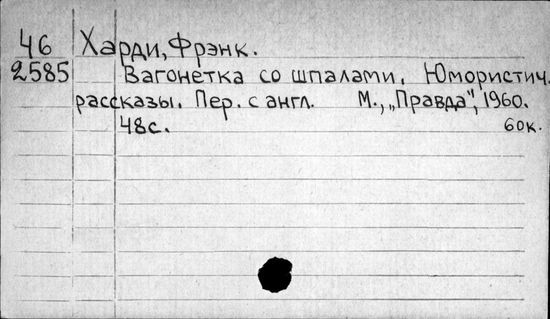 46 Харди, Фрэнк.
2585 Вагонетка со шпалами. Юмористич.
рассказы. Пер. с англ. М., „Правда", 1960.
48с. 60к.